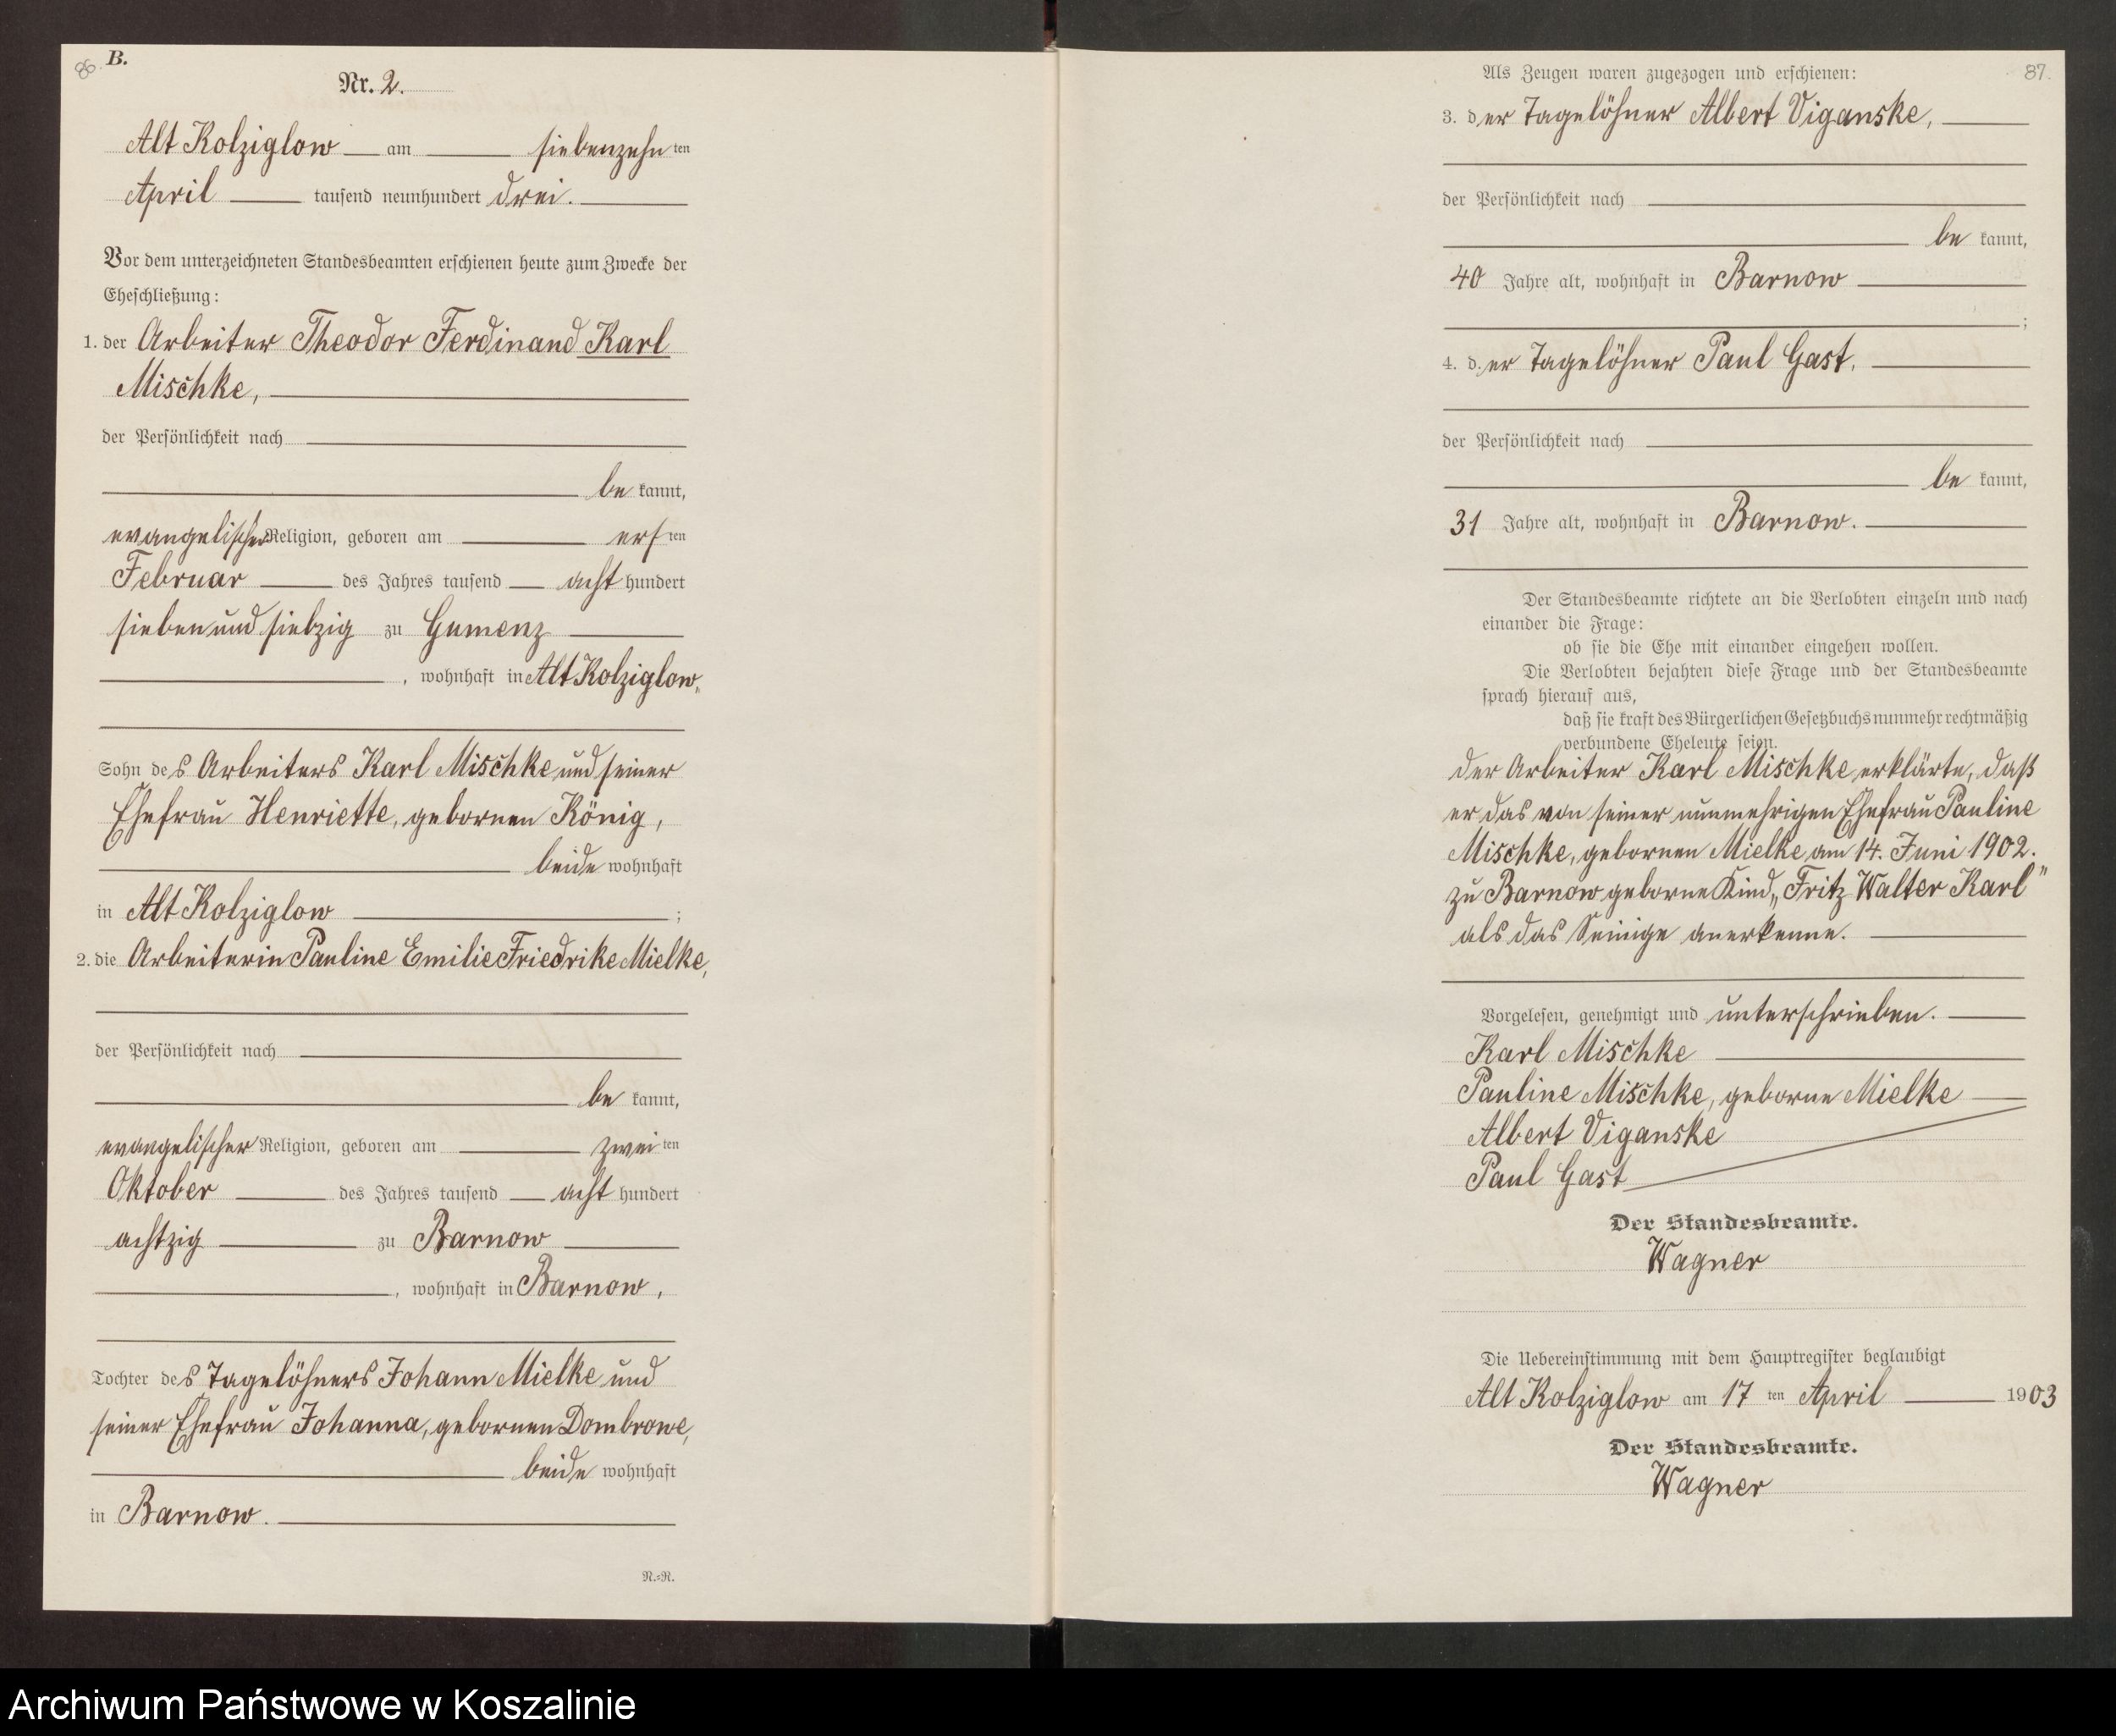 86.
B.
Nr. 2.
Alt Kolziglow am siebenzehn ten
April tausend neunhundert drei.
Vor dem unterzeichneten Standesbeamten erschienen heute zum Zwecke der
Eheschließung:
1. der Arbeiter Theodor Ferdinand Karl
Mischke,
der Persönlichkeit nach
be kannt,
evangelischer Religion, geboren am ers ten
Februar des Jahres tausend acht hundert
sieben und siebzig zu Gumenz
, wohnhaft in Alt Kolziglow,
Sohn des Arbeiters Karl Mischke und seiner
Ehefrau Henriette, gebornen König,
beide wohnhaft
in Alt Kolziglow ;
2. die Arbeiterin Pauline Emilie Friedrike Mielke,
der Persönlichkeit nach
be kannt,
evangelischer Religion, geboren am zwei ten
Oktober des Jahres tausend acht hundert
achtzig zu Barnow
, wohnhaft in Barnow,
Tochter des Tagelöhners Johann Mielke und
seiner Ehefrau Johanna, gebornen Dombrowe,
beide wohnhaft
in Barnow.
N.=R.
87.
Als Zeugen waren zugezogen und erschienen:
3. der Tagelöhner Albert Viganske,
der Persönlichkeit nach
be kannt,
40 Jahre alt, wohnhaft in Barnow
;
4. d.er Tagelöhner Paul Gast,
der Persönlichkeit nach
be kannt,
31 Jahre alt, wohnhaft in Barnow.
Der Standesbeamte richtete an die Verlobten einzeln und nach
einander die Frage:
ob sie die Ehe mit einander eingehen wollen.
Die Verlobten bejahten diese Frage und der Standesbeamte
sprach hierauf aus,
daß sie kraft des Bürgerlichen Gesetzbuchs nunmehr rechtmäßig
verbundene Eheleute seien.
Der Arbeiter Karl Mischke erklärte, daß
er das von seiner nunmehrigen Ehefrau Pauline
Mischke, gebornen Mielke am 14. Juni 1902.
zu Barnow geborne Kind „Fritz Walter Karl"
als das Seinige anerkenne.
Vorgelesen, genehmigt und unterschrieben.
Karl Mischke
Pauline Mischke, geborne Mielke
Albert Viganske
Paul Gast
Der Standesbeamte.
Wagner
Die Uebereinstimmung mit dem Hauptregister beglaubigt
Alt Kolziglow am 17 ten April 1903
Der Standesbeamte.
Wagner
Archiwum Państwowe w Koszalinie